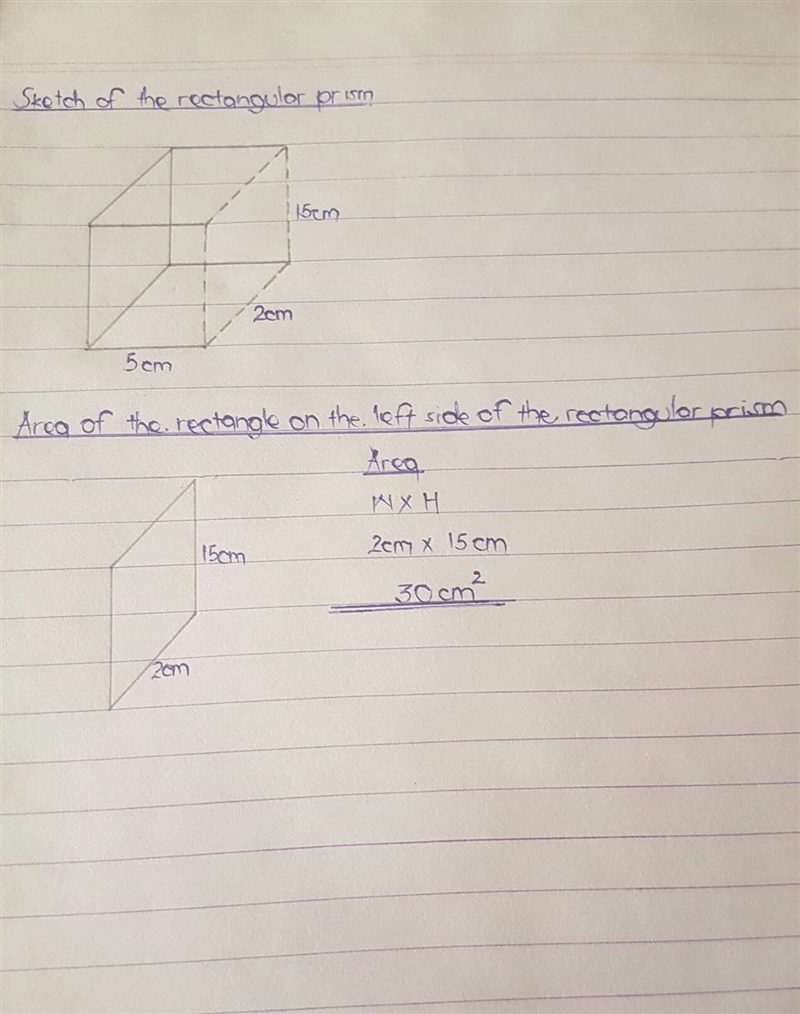 Sketch of the rectangular prism
15cm
2cm
5cm
Area of the rectangle on the left side of the rectangular prism
Area
W x H
15cm
2cm x 15cm
30cm²
2cm